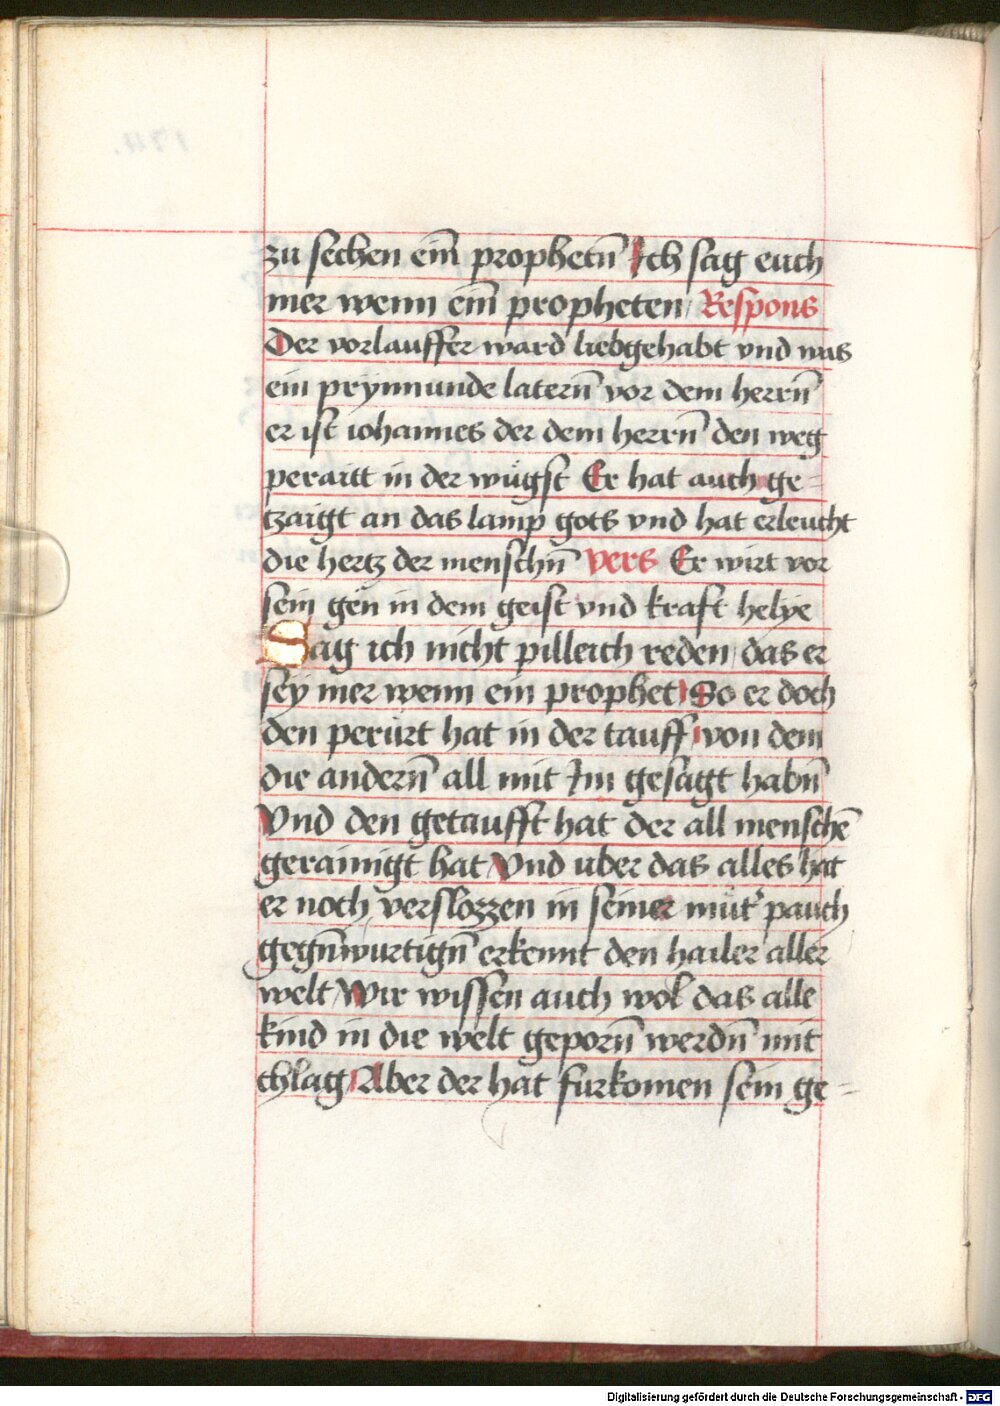 zu sechen ein̄ prophetn̄ Ich sag euch
mer wenn ein̄ propheten / Respons
Der vorlauffer ward liebgehabt vnd was
ein prÿnnunde latern̄ vor dem herrn̄
er ist iohannes der dem herrn̄ den weg
peraitt in der wügst Er hat auch ge=
tzaigt an das lamp gots vnd hat erleucht
die hertz der menschn̄ vers Er wirt vor
sein gen in dem geist vnd kraft helye
Sag ich nicht pilleich reden / das er
sey mer wenn ein prophet So er doch
den perürt hat in der tauff / von dem
die andern̄ all mit Im gesagt habn̄
Vnd den getaufft hat der all menschē
gerainigt hat Vnd uber das alles hat
er noch verslozzen in seiner müt' pauch
gegn̄wurtign̄ erkennt den hailer aller
welt / Wir wissen auch wol das alle
kind in die welt geporn̄ werdn̄ mit
chlag Aber der hat furkomen sein ge=
Digitalisierung gefördert durch die Deutsche Forschungsgemeinschaft - DFG